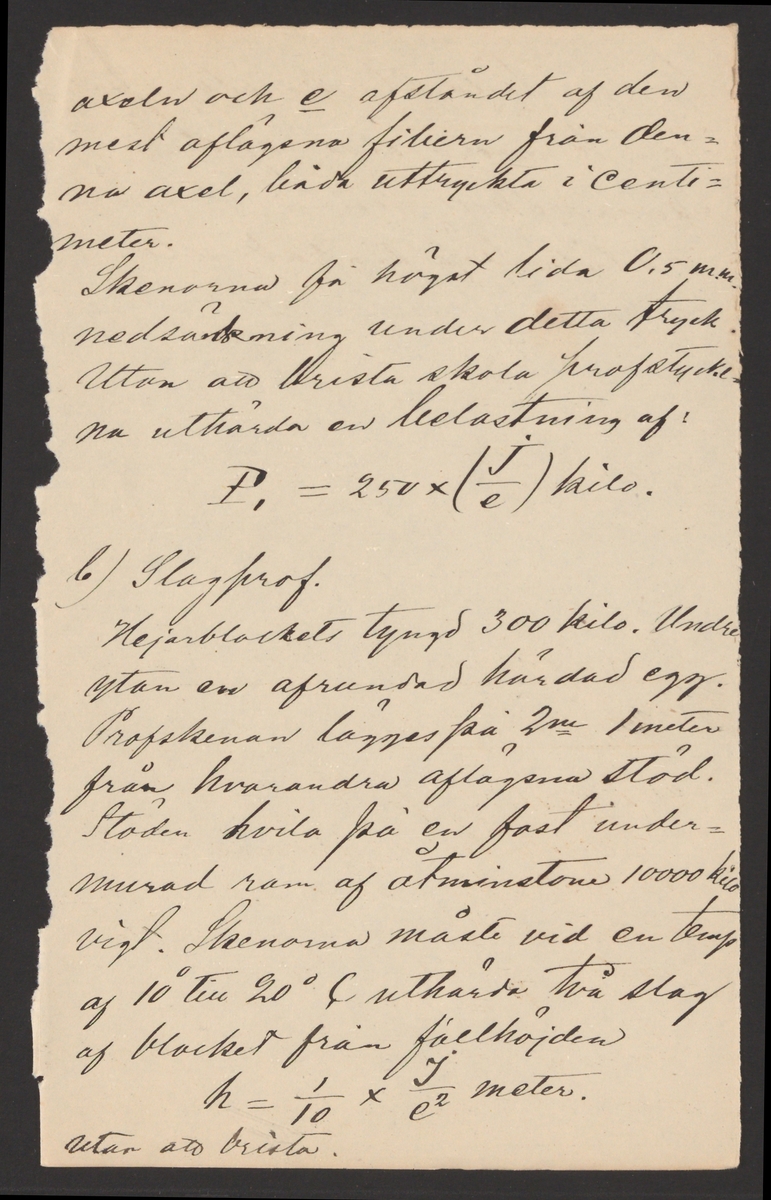 axeln och e afståndet af den
mest aflägsna fibern från den=
na axel, båda uttryckta i centi=
meter.
Skenorna få högst lida 0.5 m.m.
nedsänkning under detta tryck.
Utan att brista skola profstycke=
na uthärda en belastning af:
P, = 250 × (J/e) kilo.
b) Slagprof.
Hejarblockets tyngd 300 kilo. Undre
ytan en afrundad härdad egg.
Profskenan lägges på 2ne 1 meter
från hvarandra aflägsna stöd.
Stöden hvila på en fast under=
murad ram af åtminstone 10000 kilo
vigt. Skenorna måste vid en temp
af 10° till 20° C uthärda två slag
af blocket från fällhöjden
h = 1/10 × J/e² meter.
utan att brista.